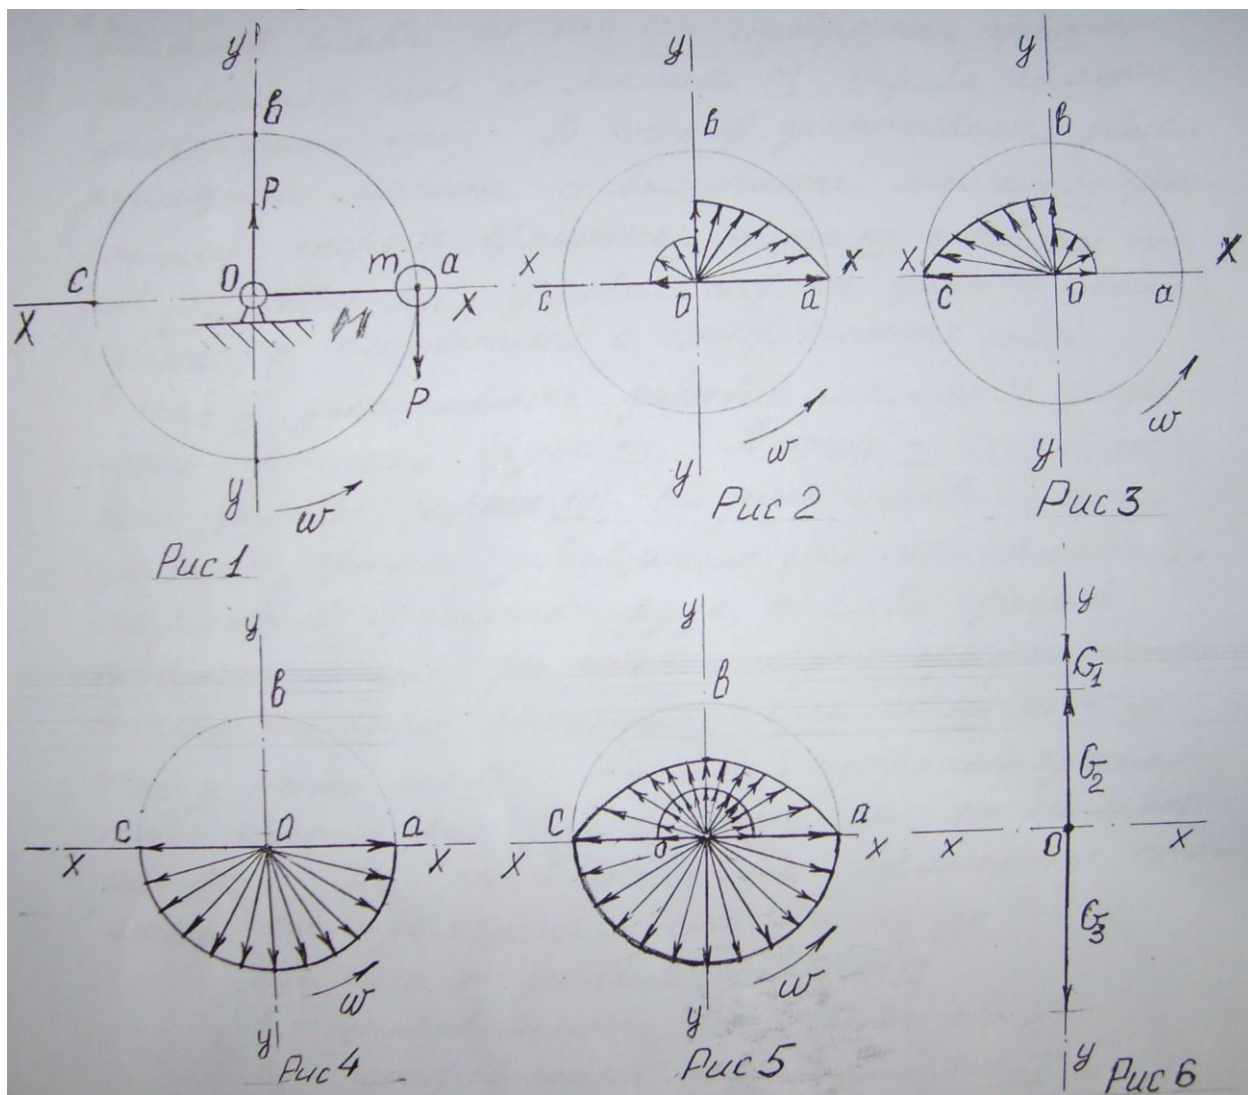 y
в
P
C
O
m
a
X
M
X
P
y
w
Рис 1
y
в
X
X
C
O
a
w
y
Рис 2
y
в
X
X
C
O
a
w
y
Рис 3
y
в
C
O
a
X
X
w
y
Рис 4
y
в
C
O
a
X
X
w
y
Рис 5
y
G1
G2
X
O
X
G3
y
Рис 6